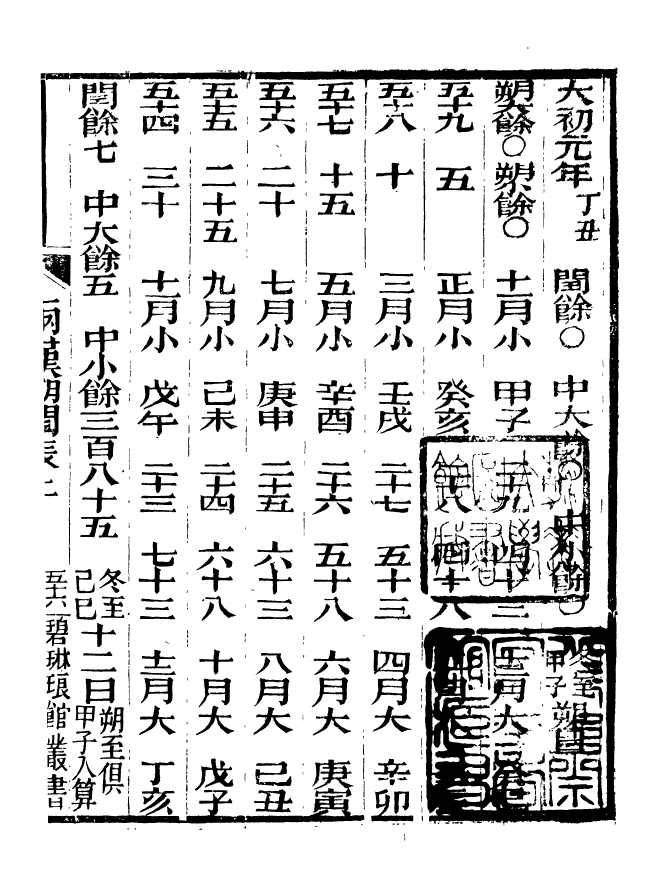 大初元年 丁丑 閏餘〇 中大餘〇 中小餘〇 冬至甲子 朔旦
朔大餘〇 朔小餘〇 十一月小 甲子 二十九 四十三 十二月大 癸巳
五十九 五 正月小 癸亥 二十八 四十八
五十八 十 三月小 壬戌 二十七 五十三 四月大 辛卯
五十七 十五 五月小 辛酉 二十六 五十八 六月大 庚寅
五十六 二十 七月小 庚申 二十五 六十三 八月大 己丑
五十五 二十五 九月小 己未 二十四 六十八 十月大 戊子
五十四 三十 十一月小 戊午 二十三 七十三 十二月大 丁亥
閏餘七 中大餘五 中小餘三百八十五 冬至己巳 十二日 朔至俱甲子入算
兩漢朔閏表 碧琳琅館叢書